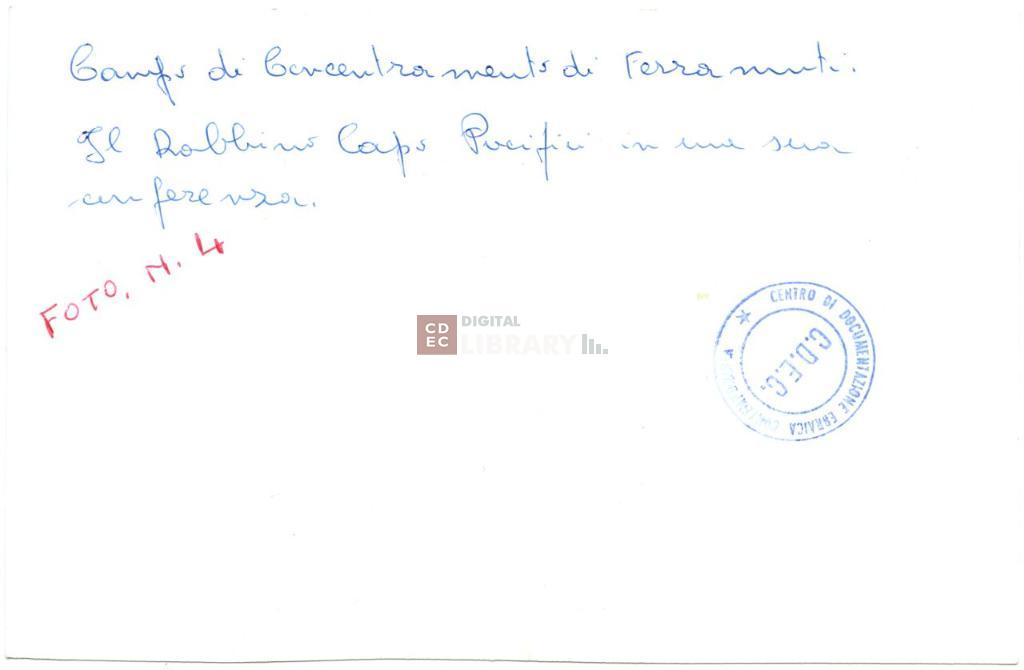 Campo di Concentramento di Ferramonti.
Il Rabbino Capo Pacifici in una sua
conferenza.
FOTO. N. 4
CD
EC
DIGITAL
LIBRARY
CENTRO DI DOCUMENTAZIONE EBRAICA
C.D.E.C.